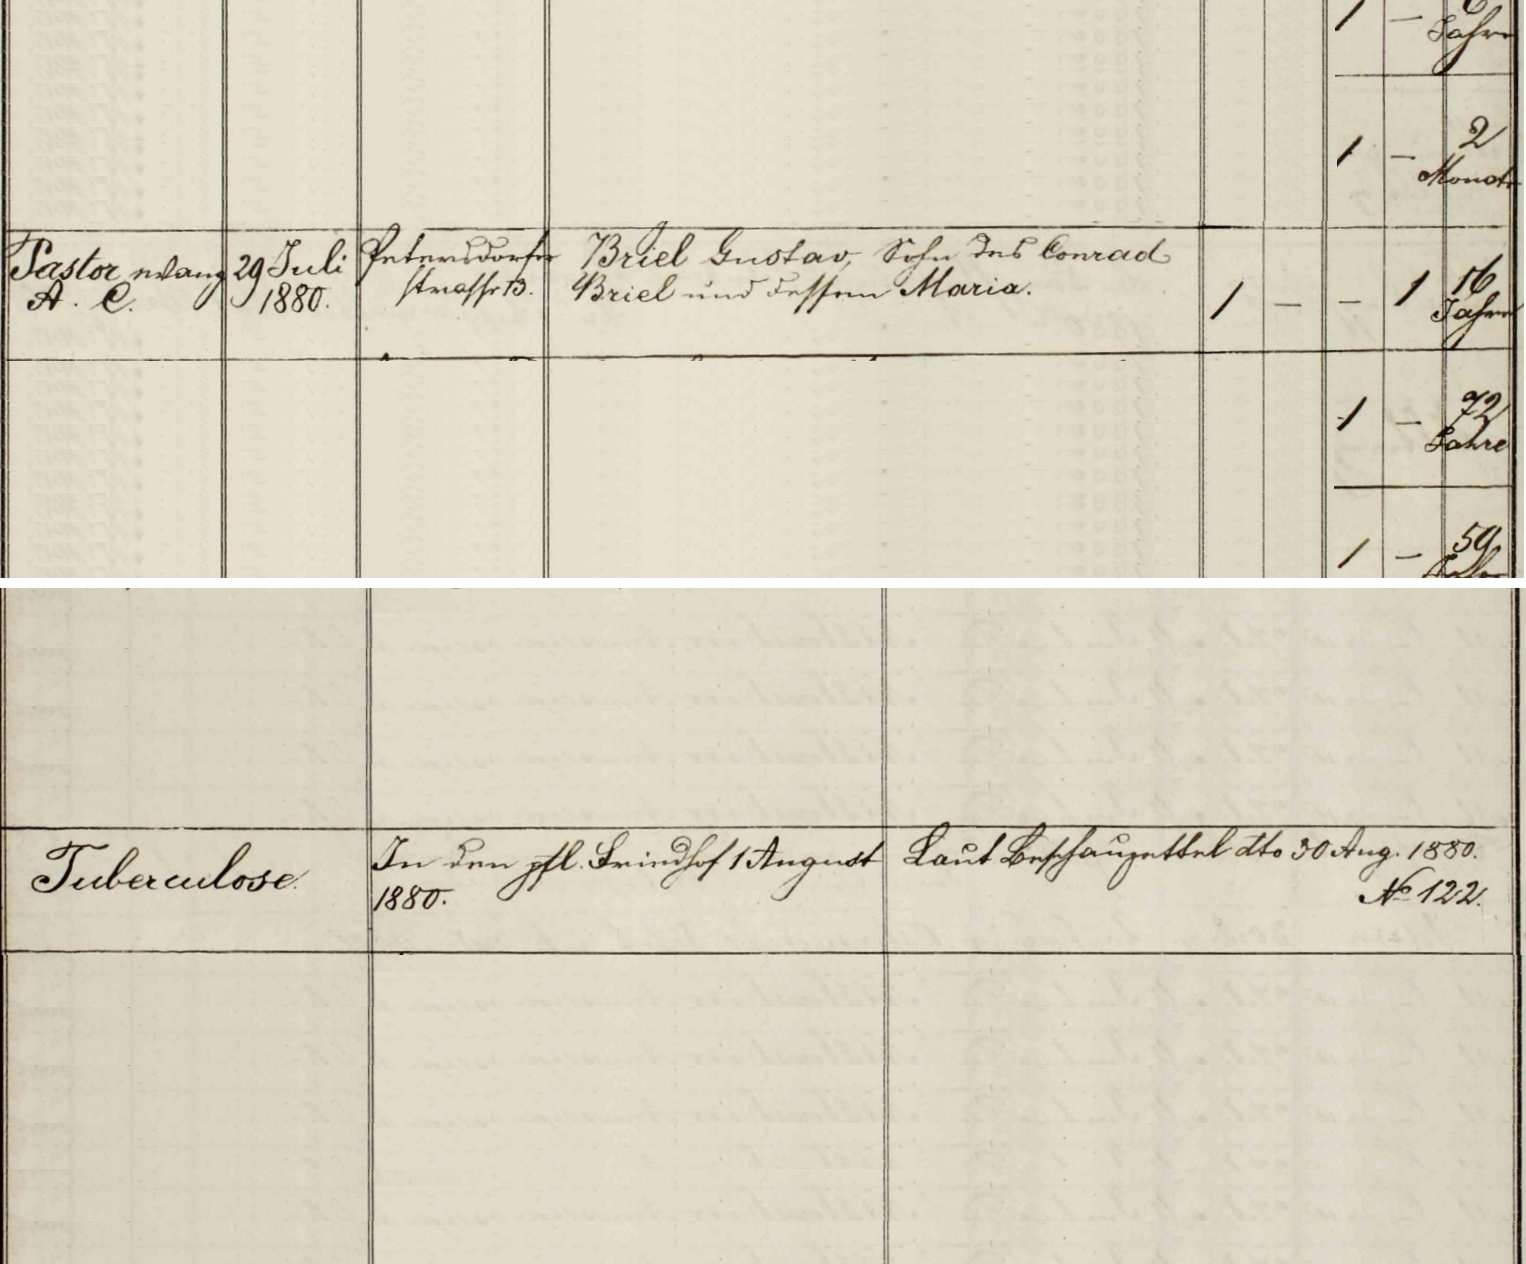 1 – 6
Jahre
1 – 2
Monate
Pastor evang 29 Juli Petersdorfer Briel Gustav, Sohn des Conrad
A. C. 1880. strasse 13. Briel und dessen Maria.
1 – – 1 16
Jahre
1 – 72
Jahre
1 – 59
Jahre
Tuberculose. In den pfl. Friedhof 1 August Laut Beschauzettel dto 30 Aug. 1880.
1880. No 122.